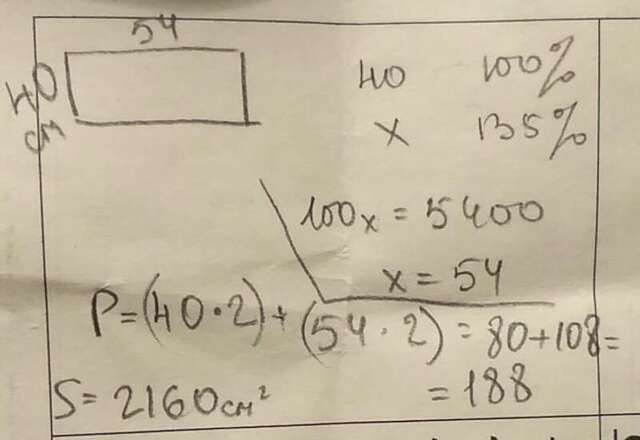 54
40 см
40 100%
x 135%
100x = 5400
x = 54
P = (40 · 2) + (54 · 2) = 80 + 108 =
= 188
S = 2160 см²